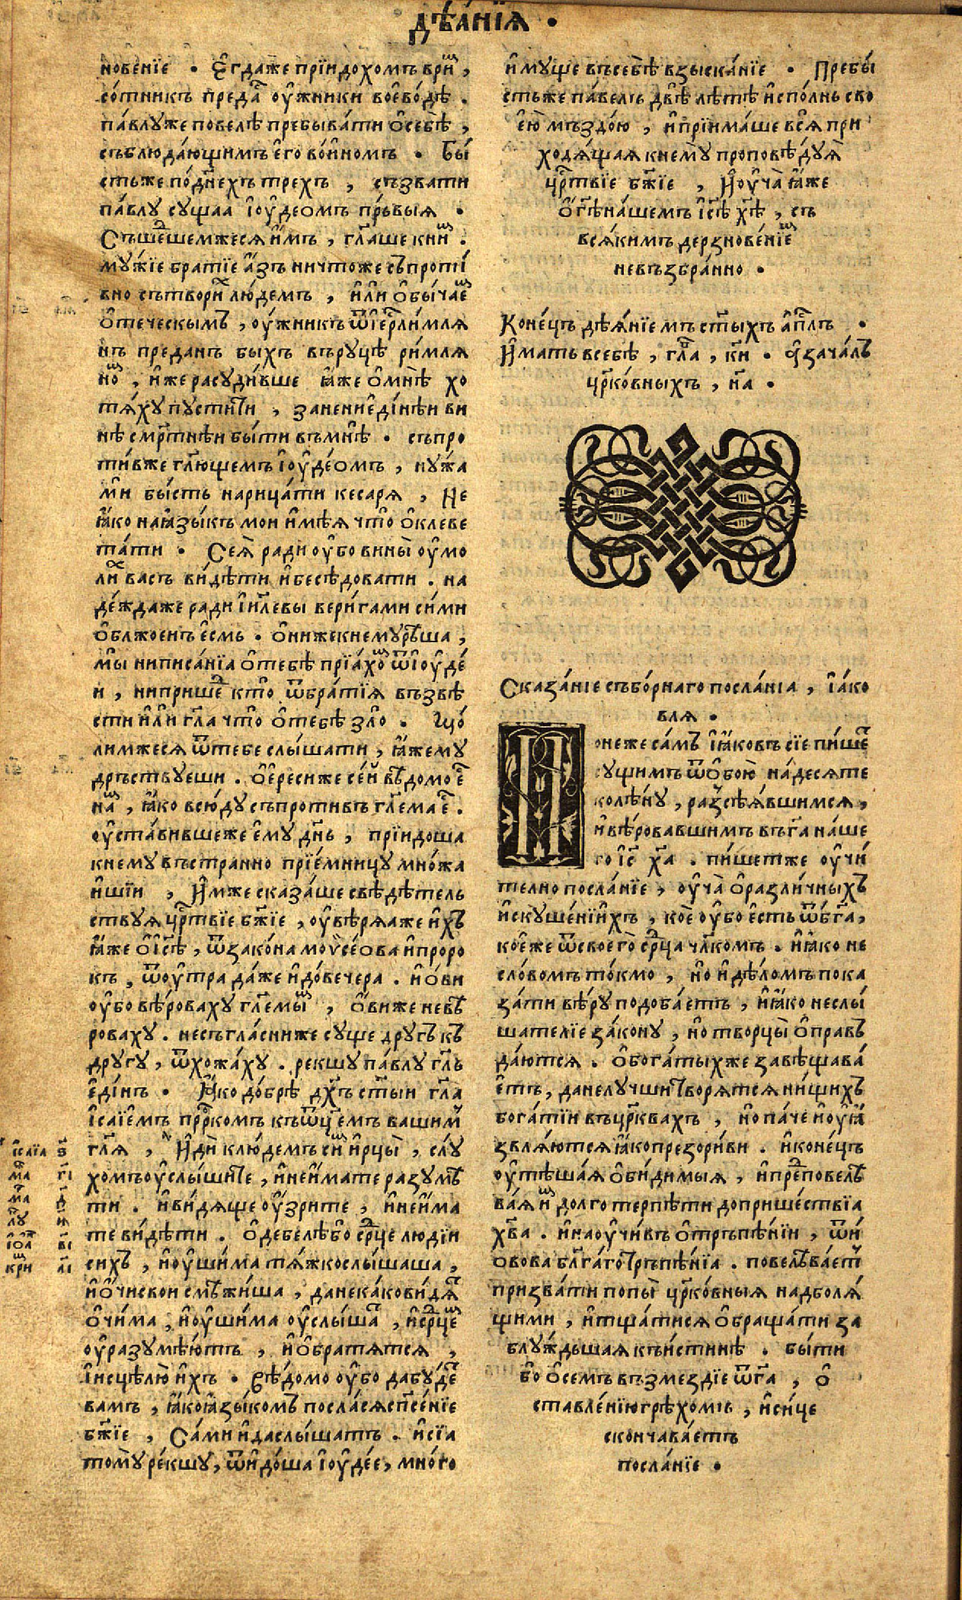 дѣѧ́нїѧ •
новенїе • Е҆гдаже прїидохомъ врⷨи ,
со́тникъ предаⷭ҇ оу҆́жники воеводѣ .
па́влуже повелѣ пребыва́ти ѡ҆себѣ ,
съблюда́ющимъ е҆го во́иномъ • Бы́
стьже по́днехъ трехъ , съзвати
па́влу сущаа і҆оу҆деомъ пръвыя •
Съшеⷣшемжеся и҆мъ , гл҃аше книⷨ .
му́жїе братїе а҆́зъ ничтоже съпроти́
вно сътвориⷯ лю́демъ , и҆́ли ѻ҆бы́чаеⷨ
ѻ҆теческымъ , оу҆́жникъ ѿі҆ерⷭ҇лимля
нъ преданъ быхъ въруцѣ ри́мля
ноⷨ , и҆́же расуди́вше ꙗ҆́же ѡ҆мнѣ хо
тя́ху пусти́ти , занени е҆ди́нѣи ви
нѣ смр҃тнѣи бы́ти въмнѣ • съпро
ти́вже гл҃ющемъ і҆оу҆де́омъ , нужа
ми́ бы́сть нарица́ти кесаря , Не
ꙗ҆́ко наꙗ҆зы́къ мои и҆мѣя что̀ ѻ҆клеве
та́ти • Сея̀ ради оу҆бо вины̀ оу҆мо
лиⷯ васъ ви́дѣти и҆ бесѣ́довати . на
де́ждаже ради і҆и҃левы вери́гами си́ми
ѻ҆блжоенъ е҆смь • ѻ҆нижекнемурѣша ,
мы̀ ниписа́нїа ѡ҆тебѣ прїа́хоⷨ ѿі҆оу҆де́
и , нипришеⷣ кто̀ ѿбра́тїя възвѣ
сти и҆́ли гл҃а что̀ ѡ҆тебѣ зло̀ . Що́
лимжеся ѿтебе слы́шати , ꙗ҆́жему
дръствуеши . ѡ҆́ересиже се́й вѣдомо еⷭ҇
наⷨ , ꙗ҆́ко всю́ду съпротивъ гл҃ема еⷭ҇ .
оу҆ста́вившеже е҆му дн҃ь , прїидоша
кнему въстранно прїе́мницу мно́жа
и҆шїи , И҆́мже сказа́ше свѣдѣтель
ствуя црⷭ҇твїе бж҃їе , оу҆вѣря́яже и҆́хъ
ꙗ҆́же ѡ҆і҆с҃ѣ , ѿзако́на мѡѵсеова и҆проро
къ , ѿоу҆́тра да́же и҆ до́вечера . и҆ ѻ҆ви
оу҆бо вѣ́роваху гл҃емыⷨ , ѻ҆́виже невѣ
роваху . несъгла́сниже суще другъ къ
другу , ѿхожа́ху . рекшу па́влу гл҃ъ
е҆ди́нъ • Ꙗ҆́ко до́брѣ дх҃ъ ст҃ыи гл҃а
і҆са́їемъ прⷪ҇ркомъ къѿц҃емъ вашимⷨ
гл҃я , И҆дѝ клюдемъ сиⷨ и҆рцы̀ , слу́
хомъоу҆слы́шите , и҆неи҆́мате разумѣ
ти . и҆ви́дяще оу҆зрите , и҆неи҆́ма
те ви́дѣти . Ѻ҆дебелѣбо срⷣце людїи
сихъ , и҆оу҆ши́ма тя́жкослы́шаша ,
и҆ ѻ҆́чисвои смѣжи́ша , данека́кови́дяⷮ
ѻ҆чи́ма , и҆оу҆ши́ма оу҆слы́шаⷮ , и҆срⷣцеⷨ
оу҆разумѣ́ютъ , и҆ ѻ҆братя́тся ,
і҆исцѣлю̀ и҆́хъ • вѣ́домо оу҆бо дабу́деⷮ
вамъ , ꙗ҆́коꙗ҆зы́комъ посла́сяспⷭ҇енїе
бж҃їе , Са́ми и҆ даслы́шатъ . и҆сїа
тому ре́кшу , ѿидо́ша і҆оу҆де́е , мно́го
і҆саїа ѕ҃
маⷮ г҃і
маⷬ д҃
луⷦ и҃
і҆оаⷩ в҃і
криⷨ а҃і
и҆му́ще въсебѣ взыска́нїе • Пребы́
стьже па́велъ двѣ лѣтѣ и҆спо́лнь сво
е҆ю̀ мъздо́ю , и҆ прїима́ше вся̀ при
ходя́щая кнему̀ проповѣдуя̀
црⷭ҇твїе бж҃їе , И҆оу҆ча̀ ꙗ҆́же
ѡ҆гд҃ѣна́шемъ і҆с҃ѣ хⷭ҇ѣ , съ
вся́кимъ дерзнове́нїеⷨ
невъзбра́нно •
Коне́цъ дѣя́нїемъ ст҃ыхъ а҆пⷭ҇лъ •
И҆́мать всебѣ , гла҃ , к҃и • Ѿ зача́лъ
црⷦ҇о́вныхъ , н҃а •
Сказа́нїе събо́рнаго посла́нїа , і҆а́ко
вля •
Понеже са́мъ і҆а́ковъ сїе пи́шеⷮ
сущимъ ѿѻ҆бою̀ на́десяте
колѣну , разсѣя́вшимся ,
и҆ вѣ́ровавшимъ въг҃а на́ше
го і҆с҃ ха҃ . пи́шетже оу҆чи́
телно посла́нїе , оу҆ча̀ ѡ҆разли́чныхъ
и҆скуше́нїихъ , коѐ оу҆бо е҆сть ѿбг҃а ,
кое́же ѿсвоего̀ срⷣца чл҃комъ . и҆ꙗ҆́ко не
сло́вомъ то́кмо , но и҆ дѣ́ломъ пока
за́ти вѣру подоба́етъ , и҆ꙗ҆́ко неслы́
шателїе зако́ну , но творцы̀ ѻ҆прав
да́ются . ѡ҆бога́тыхже завѣщава́
етъ , данелу́чши творя́тся ни́щихъ
бога́тїи въцр҃квахъ , но па́че и҆ оу҆ꙗ
звля́ются ꙗ҆́копрезори́ви . и҆ коне́цъ
оу҆тѣша́я ѻ҆би́димыя , и҆преⷣповелѣ
ва́я иⷨ долго терпѣти до прише́ствїа
хв҃а . и҆ наоу҆чи́въ ѡ҆трпѣ́нїи , ѿи
о́вова бл҃га́го трпѣ́нїа . повелѣва́етъ
призва́ти попы̀ црⷦ҇о́вныя надболя́
щими , и҆тща́тися ѻ҆браща́ти за
блу́ждьшая къи́стинѣ . бы́ти
бо ѡ҆семъ възмездїе ѿг҃а , ѻ҆
ставле́нїюгрѣхомъ , и҆ си́це
сконча́ваетъ
посла́нїе •